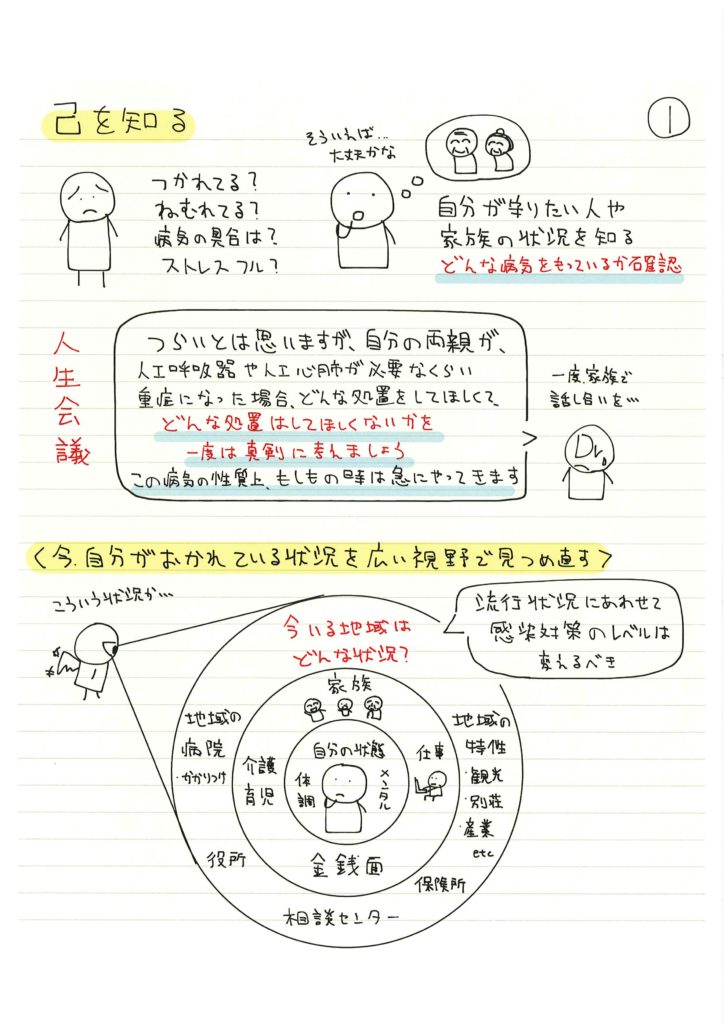 己を知る
①
つかれてる?
ねむれてる?
病気の具合は?
ストレスフル?
そういえば…
大丈夫かな
自分が守りたい人や
家族の状況を知る
どんな病気をもっているか確認
人生会議
つらいとは思いますが、自分の両親が、
人工呼吸器や人工心肺が必要なくらい
重症になった場合、どんな処置をしてほしくて、
どんな処置はしてほしくないかを
一度は真剣に考えましょう
この病気の性質上、もしもの時は急にやってきます
一度、家族で
話し合いを…
Dr.
<今、自分がおかれている状況を広い視野で見つめ直す>
こういう状況か…
流行状況にあわせて
感染対策のレベルは
変えるべき
今いる地域は
どんな状況?
家族
地域の
病院
・かかりつけ
役所
介護
育児
自分の状態
体調
メンタル
仕事
金銭面
地域の
特性
・観光
・別荘
・産業
etc
保険所
相談センター